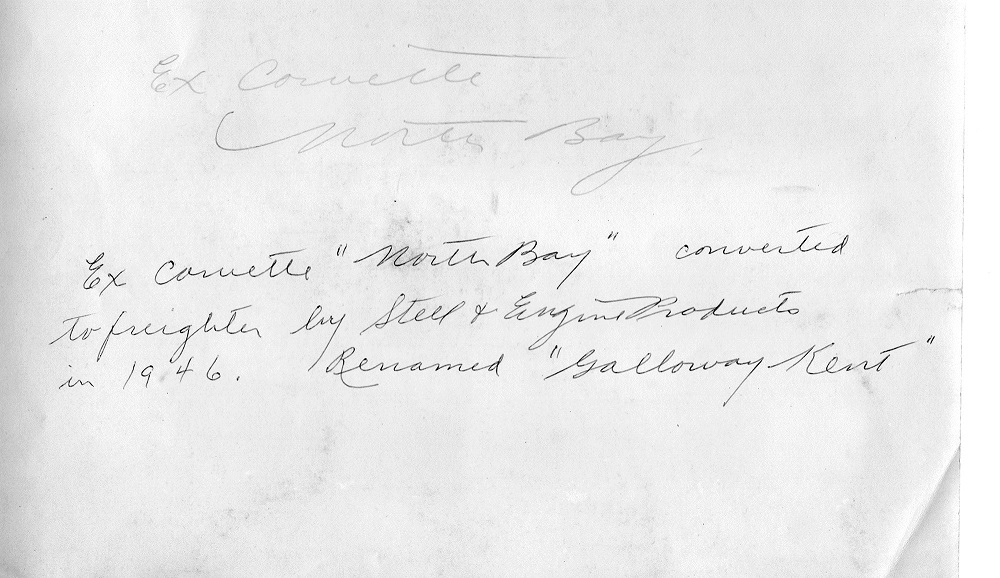 Ex Corvette
North Bay,
Ex Corvette "North Bay" converted
to freighter by Steel & Engine Products
in 1946. Renamed "Galloway Kent"